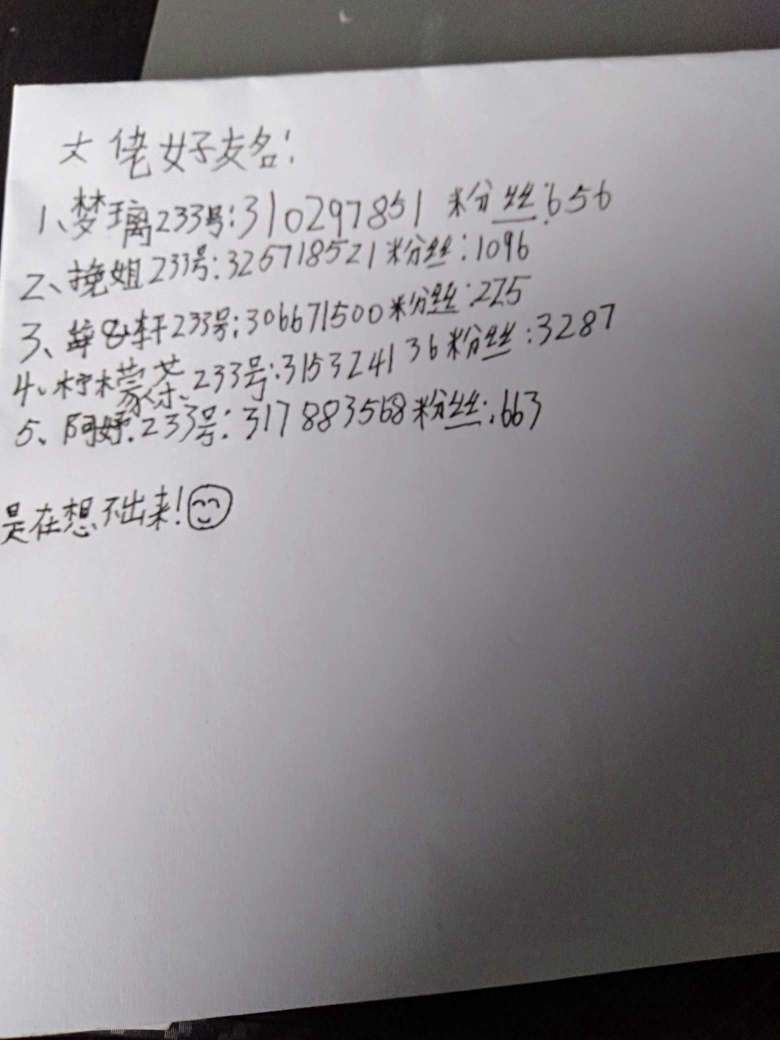 大佬好友名!
1、梦璃233号:310297851 粉丝:656
2、挽姐233号:326718521粉丝:1096
3、轩233号:306671500粉丝:225
4、柠檬茶、233号:315324136粉丝:3287
5、阿妤.233号:317883568粉丝:663
是在想不出来!